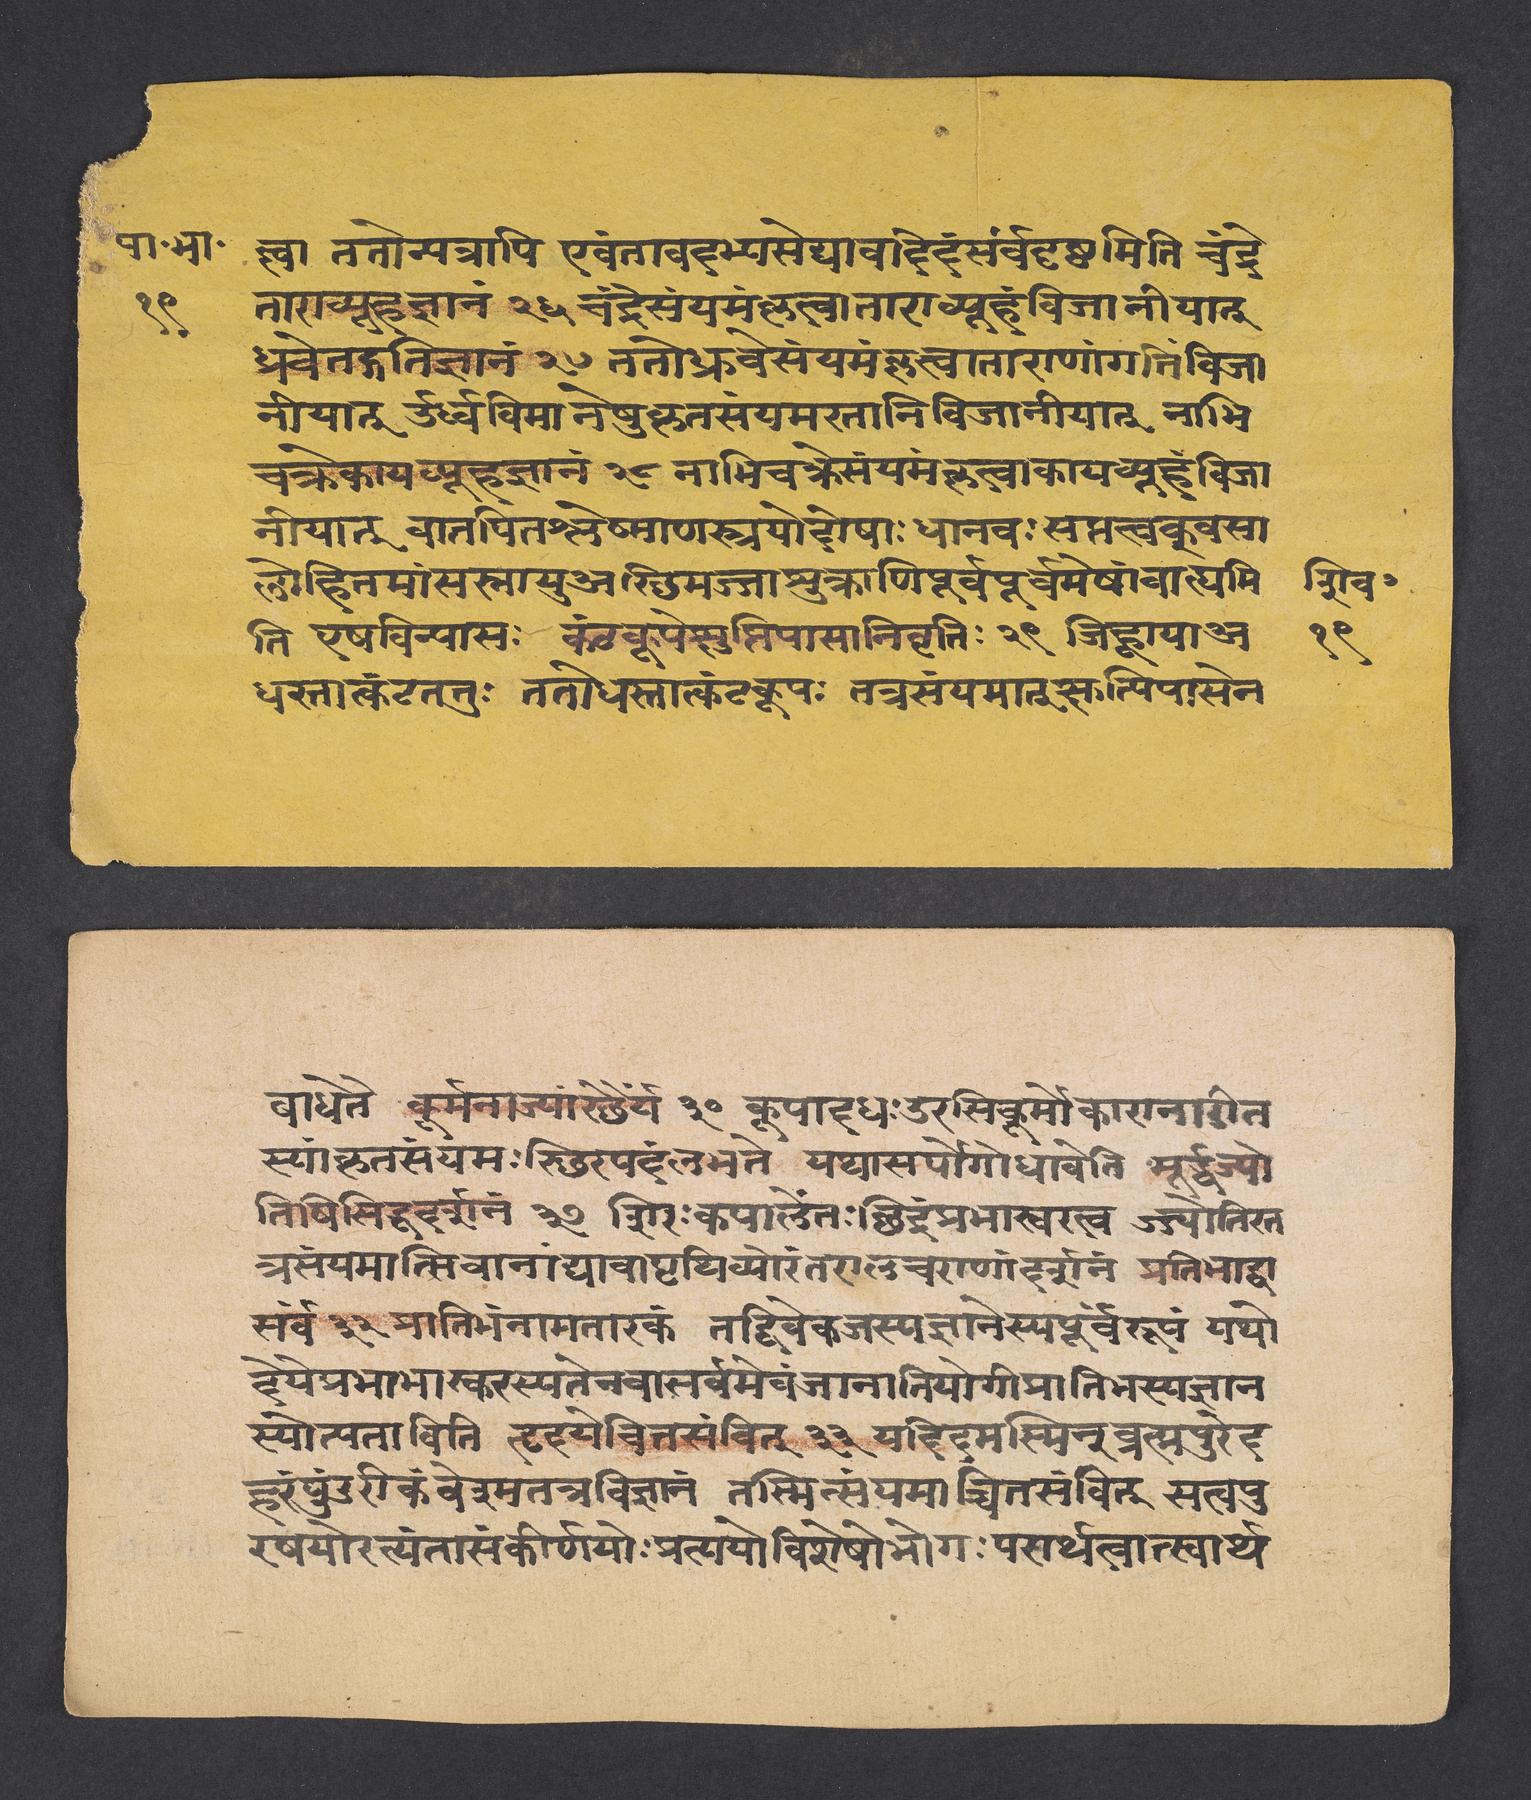 पा॰भा॰
१९
त्वा ततोन्यत्रापि एवंतावदभ्यसेद्यावदिदंसर्वंदृष्टमिति चंद्रे
ताराव्यूहज्ञानं २६ चंद्रेसंयमंकृत्वाताराव्यूहंविजानीयात्
ध्रुवेतद्गतिज्ञानं २७ ततोध्रुवेसंयमंकृत्वाताराणांगतिंविजा
नीयात् उर्ध्वविमानेषुकृतसंयमस्तानिविजानीयात् नाभि
चक्रेकायव्यूहज्ञानं २८ नाभिचक्रेसंयमंकृत्वाकायव्यूहंविजा
नीयात् वातपितश्लेष्माणस्त्रयोदोषाः धातवः सप्तत्वकुवसा
लोहितमांसस्नायुअस्थिमज्जाशुक्राणिपूर्वपूर्वमेषांवाह्यमि
ति एषविन्यासः कंठकूपेक्षुत्पिपासानिवृतिः २९ जिह्वायाअ
धस्तात्कंटतन्तुः ततोधस्तात्कंटकूपः तत्रसंयमात्क्षुत्पिपासेन
शिव॰
१९
बाधेते कूर्मनाड्यांस्थैर्यं ३० कूपादधःउरसिकूर्माकारानाडीत
स्यांकृतसंयमःस्थिरपदंलभते यथासर्पोगोधावेति मूर्द्धज्यो
तिषिसिद्धदर्शनं ३१ शिरःकपालेंतःछिद्रंप्रभास्वरत्व ज्ज्योतिस्त
त्रसंयमात्सिवानांद्यावापृथिव्योरंतरालचराणांदर्शनं प्रतिभाद्वा
सर्वं ३२ प्रातिभंनामतारकं तद्विवेकजस्यज्ञानेस्यपूर्वंरूपं यथो
दयेप्रभाभास्करस्यतेनवासर्वमेवंजानातियोगीप्रातिभस्यज्ञान
स्योत्पताविति हृदयेचितसंवित् ३३ यदिदमस्मिन्ब्रह्मपुरेद
ह्रंपुंडरीकंवेश्मतत्रविज्ञानं तस्मिन्संयमाच्चितसंवित् सत्वपु
रषयोरत्यंतासंकीर्णयोःप्रत्ययोविशेषोभोगःपरार्थत्वात्स्वार्थ